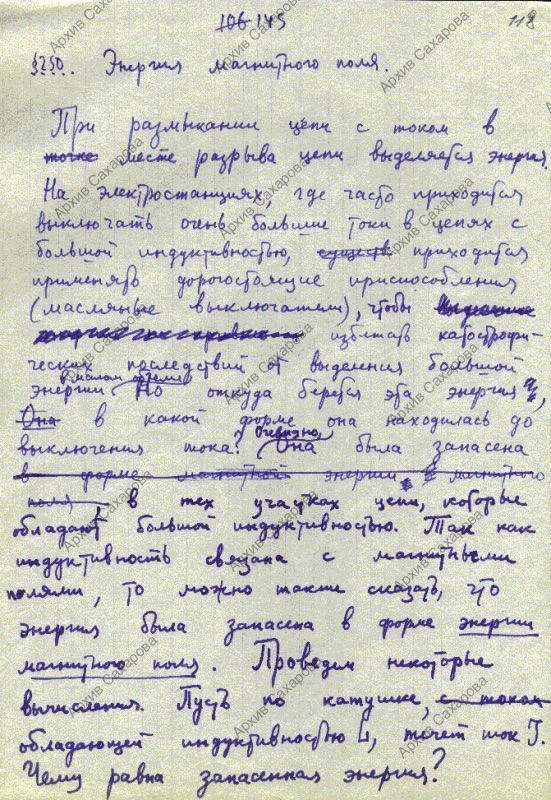 106-145
118
§250. Энергия магнитного поля.
При размыкании цепи с током в
точке месте разрыва цепи выделяется энергия.
На электростанциях, где часто приходится
выключать очень большие токи в цепях с
большой индуктивностью, приходится
применять дорогостоящие приспособления
(масляные выключатели), чтобы
избежать катастрофи-
ческих последствий от выделения большой
энергии в малом объеме. Но откуда берется эта энергия,
Она в какой форме она находилась до
выключения тока? Очевидно, Она была запасена
в форме магнитной энергии магнитного
поля в тех участках цепи, которые
обладают большой индуктивностью. Так как
индуктивность связана с магнитными
полями, то можно также сказать, что
энергия была запасена в форме энергии
магнитного поля. Проведем некоторые
вычисления. Пусть по катушке, с током
обладающей индуктивностью L, течет ток J.
Чему равна запасенная энергия?
Архив Сахарова